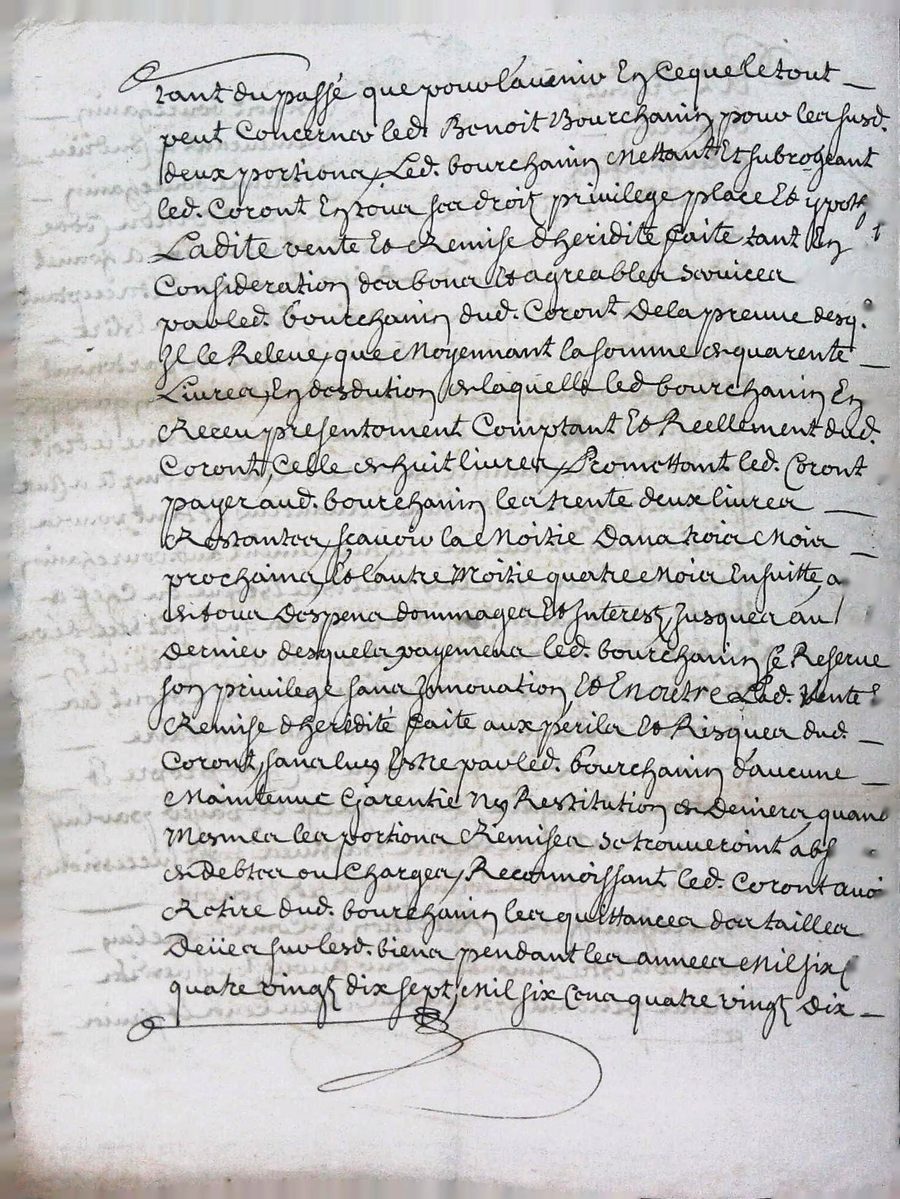 tant du passé que pour l'avenir En ce que le tout
peut Concerner led. Benoit Bourchanin pour les susd.
deux portions, Led. bourchanin Mettant Et subrogeant
led. Coront En tous ses droit privilege place Et ypoth
Ladite vente Et Remise d'heridité faite tant En
Consideration des bons Et agreables services
par led. bourchanin dud. Coront De la preuve desq.
Il le Releve, que Moyennant la somme de quarente
Livres, En desdution de laquelle led bourchanin En
Receu presentement Comptant Et Reellement dud.
Coront, Celle de huit livres, Promettant led. Coront
payer aud. bourchanin les trente deux livres
Restantes, sçavoir la Moitie Dans trois Mois
prochains, Et lautre Moitie quatre Mois Ensuitte, a
de tous Despens dommages Et Interest, Jusques au
Dernier desquels payemens led. bourchanin se Reserve
son privilege sans Innovation Et En outre Lad. Vente
Remise d'heredité faite aux périls Et Risques dud.
Coront, sans luy Estre par led. bourchanin d'aucune
Maintenue Garentie Ny Restitution de Deniers, quand
Mesmes les portions Remises se trouveroint abs
de Debtes ou Charges, Reconnoissant led. Coront avoi
Retire dud. bourchanin les quittances des tailles
Deües sur lesd. biens pendant les annees Mil six
quatre vingt dix sept, Mil six Cens quatre vingt Dix